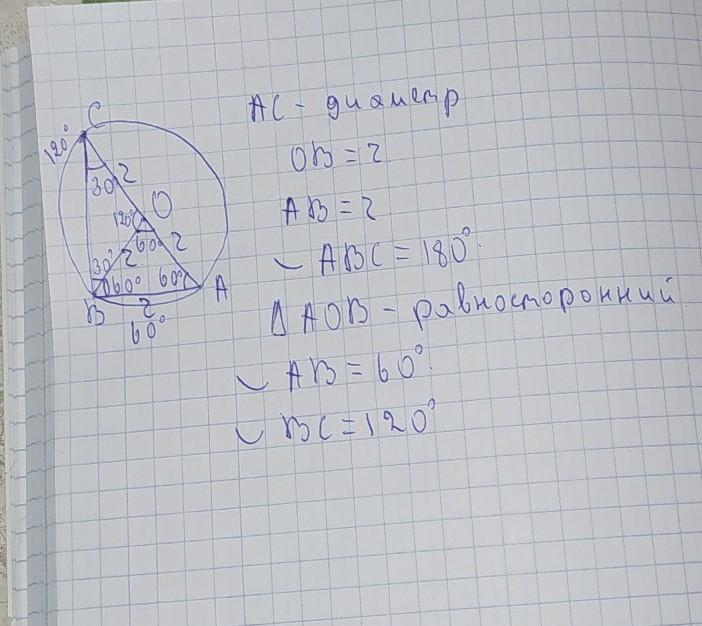 AC - диаметр
OB = 2
AB = 2
◡ ABC = 180°.
Δ AOB - равносторонний.
◡ AB = 60°.
◡ BC = 120°.
C
120°
30°
2
O
120°
60°
2
30°
2
60°
60°
A
B
2
60°